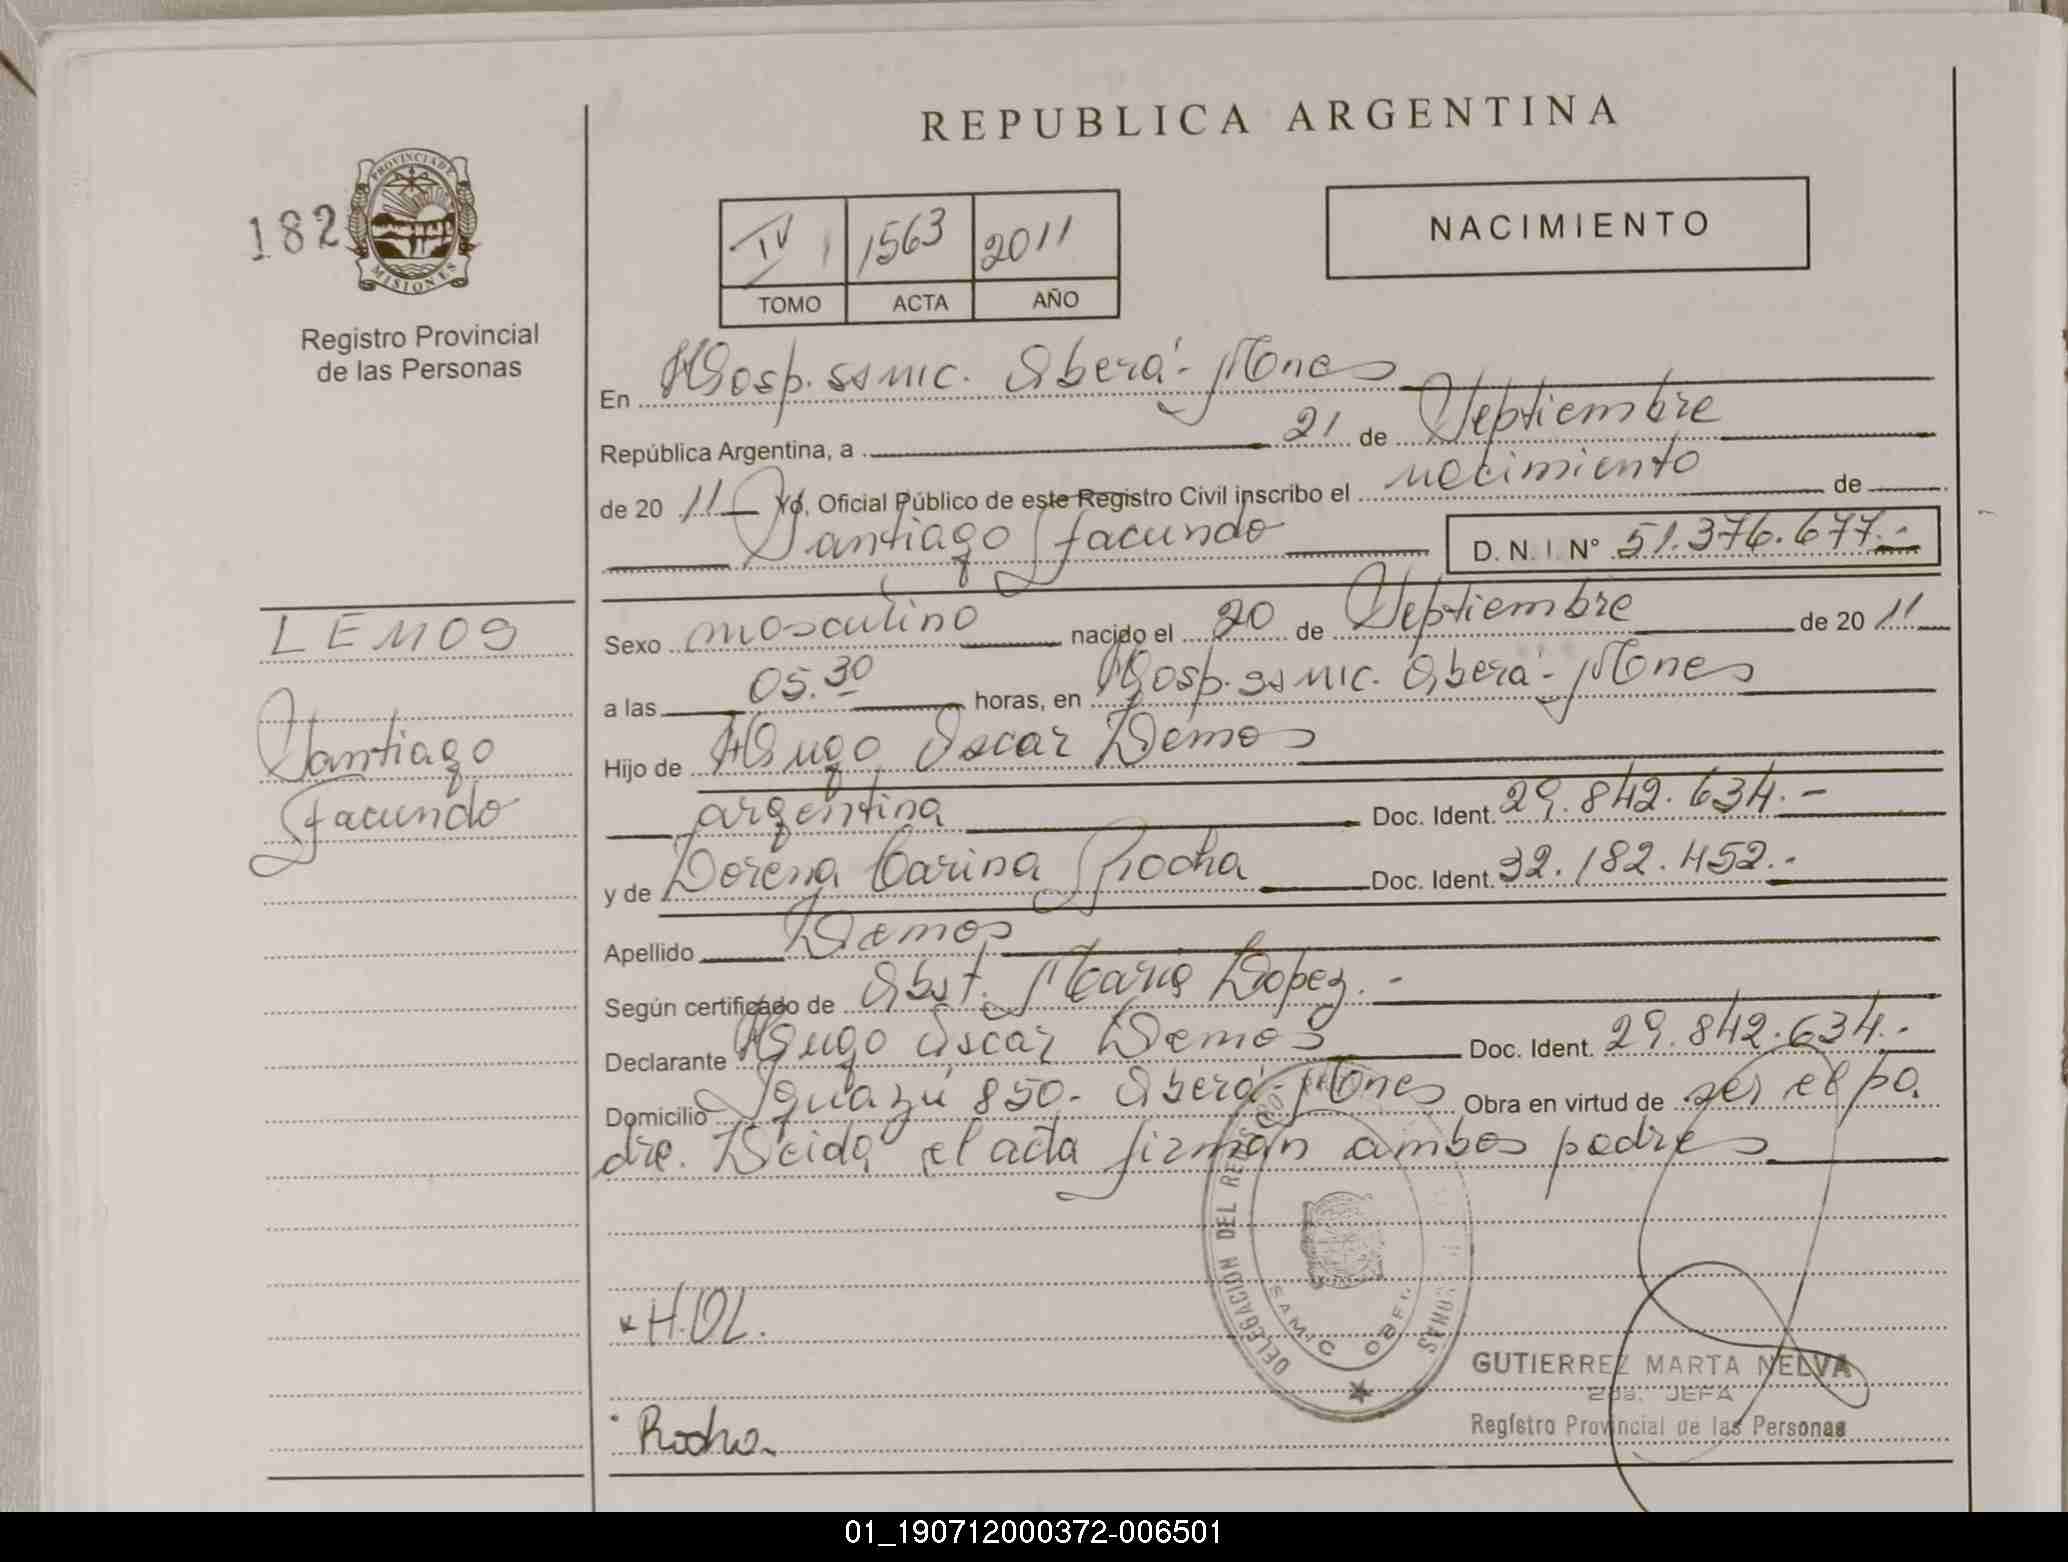 REPUBLICA ARGENTINA
182
PROVINCIA DE MISIONES
Registro Provincial
de las Personas
IV 1563 2011
TOMO ACTA AÑO
NACIMIENTO
En Hosp. SSMIC. Oberá - Mones
República Argentina, a 21 de Septiembre
de 20 11 Yo, Oficial Público de este Registro Civil inscribo el nacimiento de
Santiago Facundo D. N. I. N° 51.376.677.-
LEMOS
Santiago
Facundo
Sexo masculino nacido el 20 de Septiembre de 20 11
a las 05.30 horas, en Hosp. SSMIC. Oberá - Mones
Hijo de Hugo Oscar Lemos
argentina Doc. Ident. 29.842.634.-
y de Lorena Carina Rocha Doc. Ident. 32.182.452.-
Apellido Lemos
Según certificado de Obst. Maria Lopez.-
Declarante Hugo Oscar Lemos Doc. Ident. 29.842.634.-
Domicilio Iguazú 850.- Oberá - Mones Obra en virtud de ser el pa
dre. Leida el acta firman ambos padres
DELEGACION DEL
SAMIC
H.OL.
GUTIERREZ MARTA NELVA
2da. JEFA
Registro Provincial de las Personas
Rocha
01_190712000372-006501